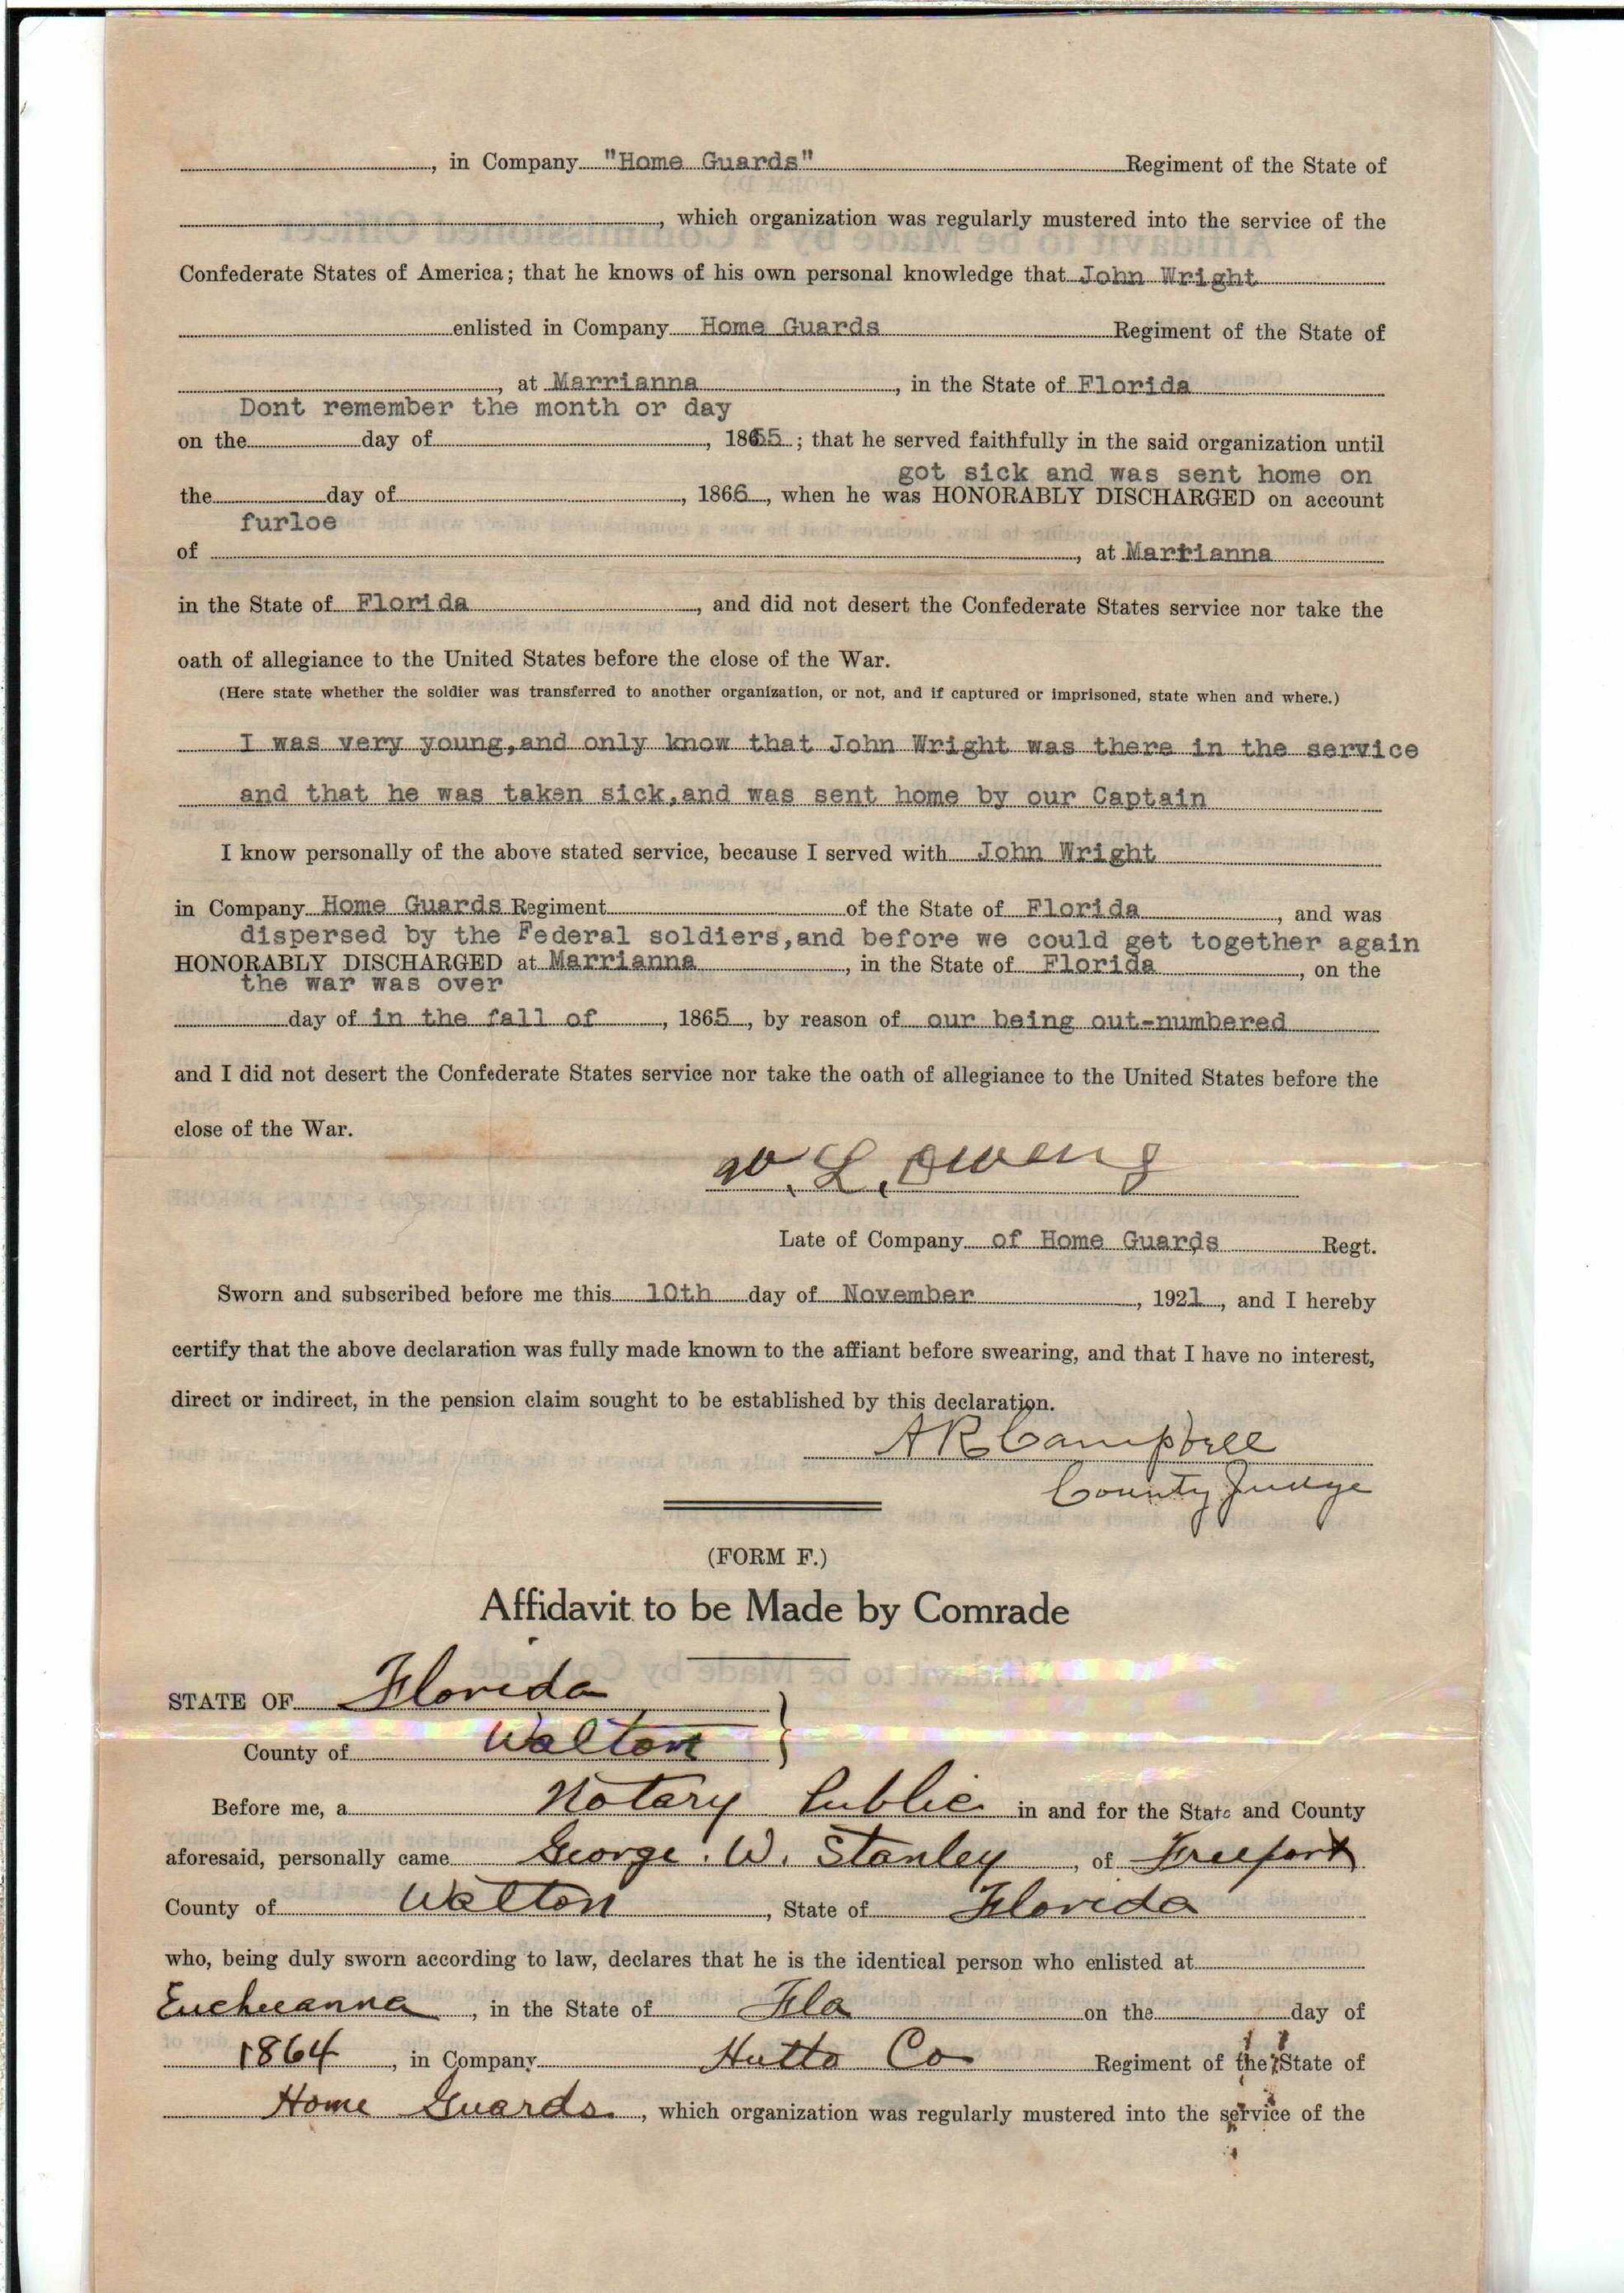 , in Company "Home Guards" Regiment of the State of
, which organization was regularly mustered into the service of the
Confederate States of America; that he knows of his own personal knowledge that John Wright
enlisted in Company Home Guards Regiment of the State of
, at Marrianna , in the State of Florida
Dont remember the month or day
on the day of , 1865 ; that he served faithfully in the said organization until
got sick and was sent home on
the day of , 1866 , when he was HONORABLY DISCHARGED on account
furloe
of , at Marrianna
in the State of Florida , and did not desert the Confederate States service nor take the
oath of allegiance to the United States before the close of the War.
(Here state whether the soldier was transferred to another organization, or not, and if captured or imprisoned, state when and where.)
I was very young,and only know that John Wright was there in the service
and that he was taken sick,and was sent home by our Captain
I know personally of the above stated service, because I served with John Wright
in Company Home Guards Regiment of the State of Florida , and was
dispersed by the Federal soldiers,and before we could get together again
HONORABLY DISCHARGED at Marrianna , in the State of Florida , on the
the war was over
day of in the fall of , 1865 , by reason of our being out-numbered
and I did not desert the Confederate States service nor take the oath of allegiance to the United States before the
close of the War.
W. L. Owens
Late of Company of Home Guards Regt.
Sworn and subscribed before me this 10th day of November , 1921 , and I hereby
certify that the above declaration was fully made known to the affiant before swearing, and that I have no interest,
direct or indirect, in the pension claim sought to be established by this declaration.
A R Campbell
County Judge
(FORM F.)
Affidavit to be Made by Comrade
STATE OF Florida
County of Walton
Before me, a Notary Public in and for the State and County
aforesaid, personally came George. W. Stanley , of Freeport
County of Walton , State of Florida
who, being duly sworn according to law, declares that he is the identical person who enlisted at
Eucheeanna , in the State of Fla on the day of
1864 , in Company Hutto Co Regiment of the State of
Home Guards. , which organization was regularly mustered into the service of the